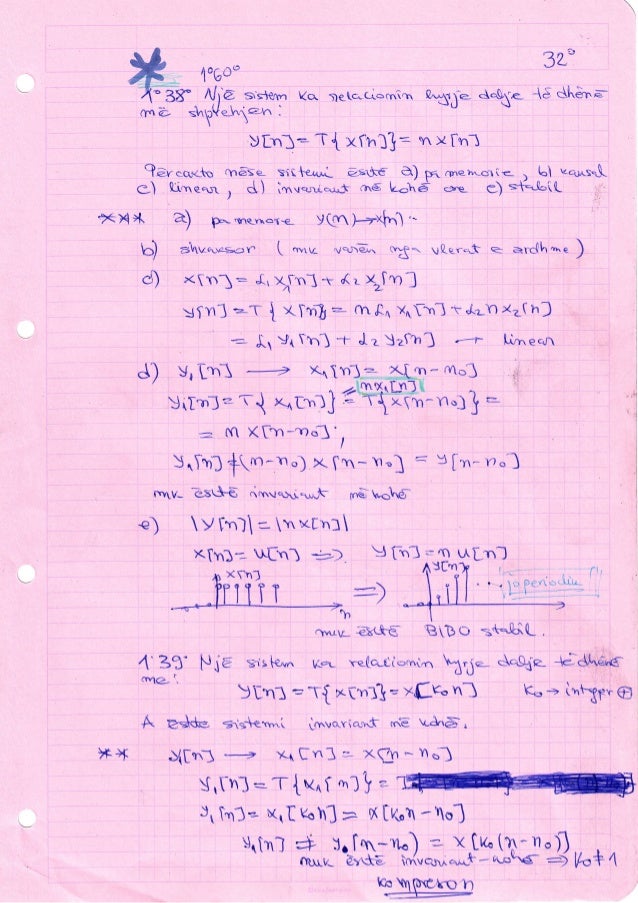 32°
1°60°
1°38° Një sistem ka relacionin hyrje dalje të dhënë
më shprehjen:
y[n] = T{x[n]} = n x[n]
Përcakto nëse sistemi është a) pa memorie, b) kausal
c) linear, d) invariant në kohë ose e) stabil
*** a) pa memore y(n) → x(n)
b) shkaksor (nuk varën nga vlerat e ardhme)
c) x[n] = α₁ x₁[n] + α₂ x₂[n]
y[n] = T{x[n]} = n α₁ x₁[n] + α₂ n x₂[n]
= α₁ y₁[n] + α₂ y₂[n] → linear
d) y₁[n] → x₁[n] = x[n-n₀]
n x₁[n]
y₁[n] = T{x₁[n]} = T{x[n-n₀]} =
= n x[n-n₀];
y₁[n] ≠ (n-n₀) x[n-n₀] = y[n-n₀]
nuk është invariant në kohë
e) |y[n]| = |n x[n]|
x[n] = u[n] => y[n] = n u[n]
x[n] => y[n] ... joperiodik
n
nuk është BIBO stabil.
1°39° Një sistem ka relacionin hyrje dalje të dhënë
me:
y[n] = T{x[n]} = x[k₀n] k₀ → integer ⊕
A është sistemi invariant në kohë.
** y₁[n] → x₁[n] = x[n-n₀]
y₁[n] = T{x₁[n]} =
y₁[n] = x₁[k₀n] = x[k₀n-n₀]
y₁[n] ≠ y[n-n₀) = x[k₀(n-n₀)]
nuk është invariant-kohë => k₀ ≠ 1
kompreson